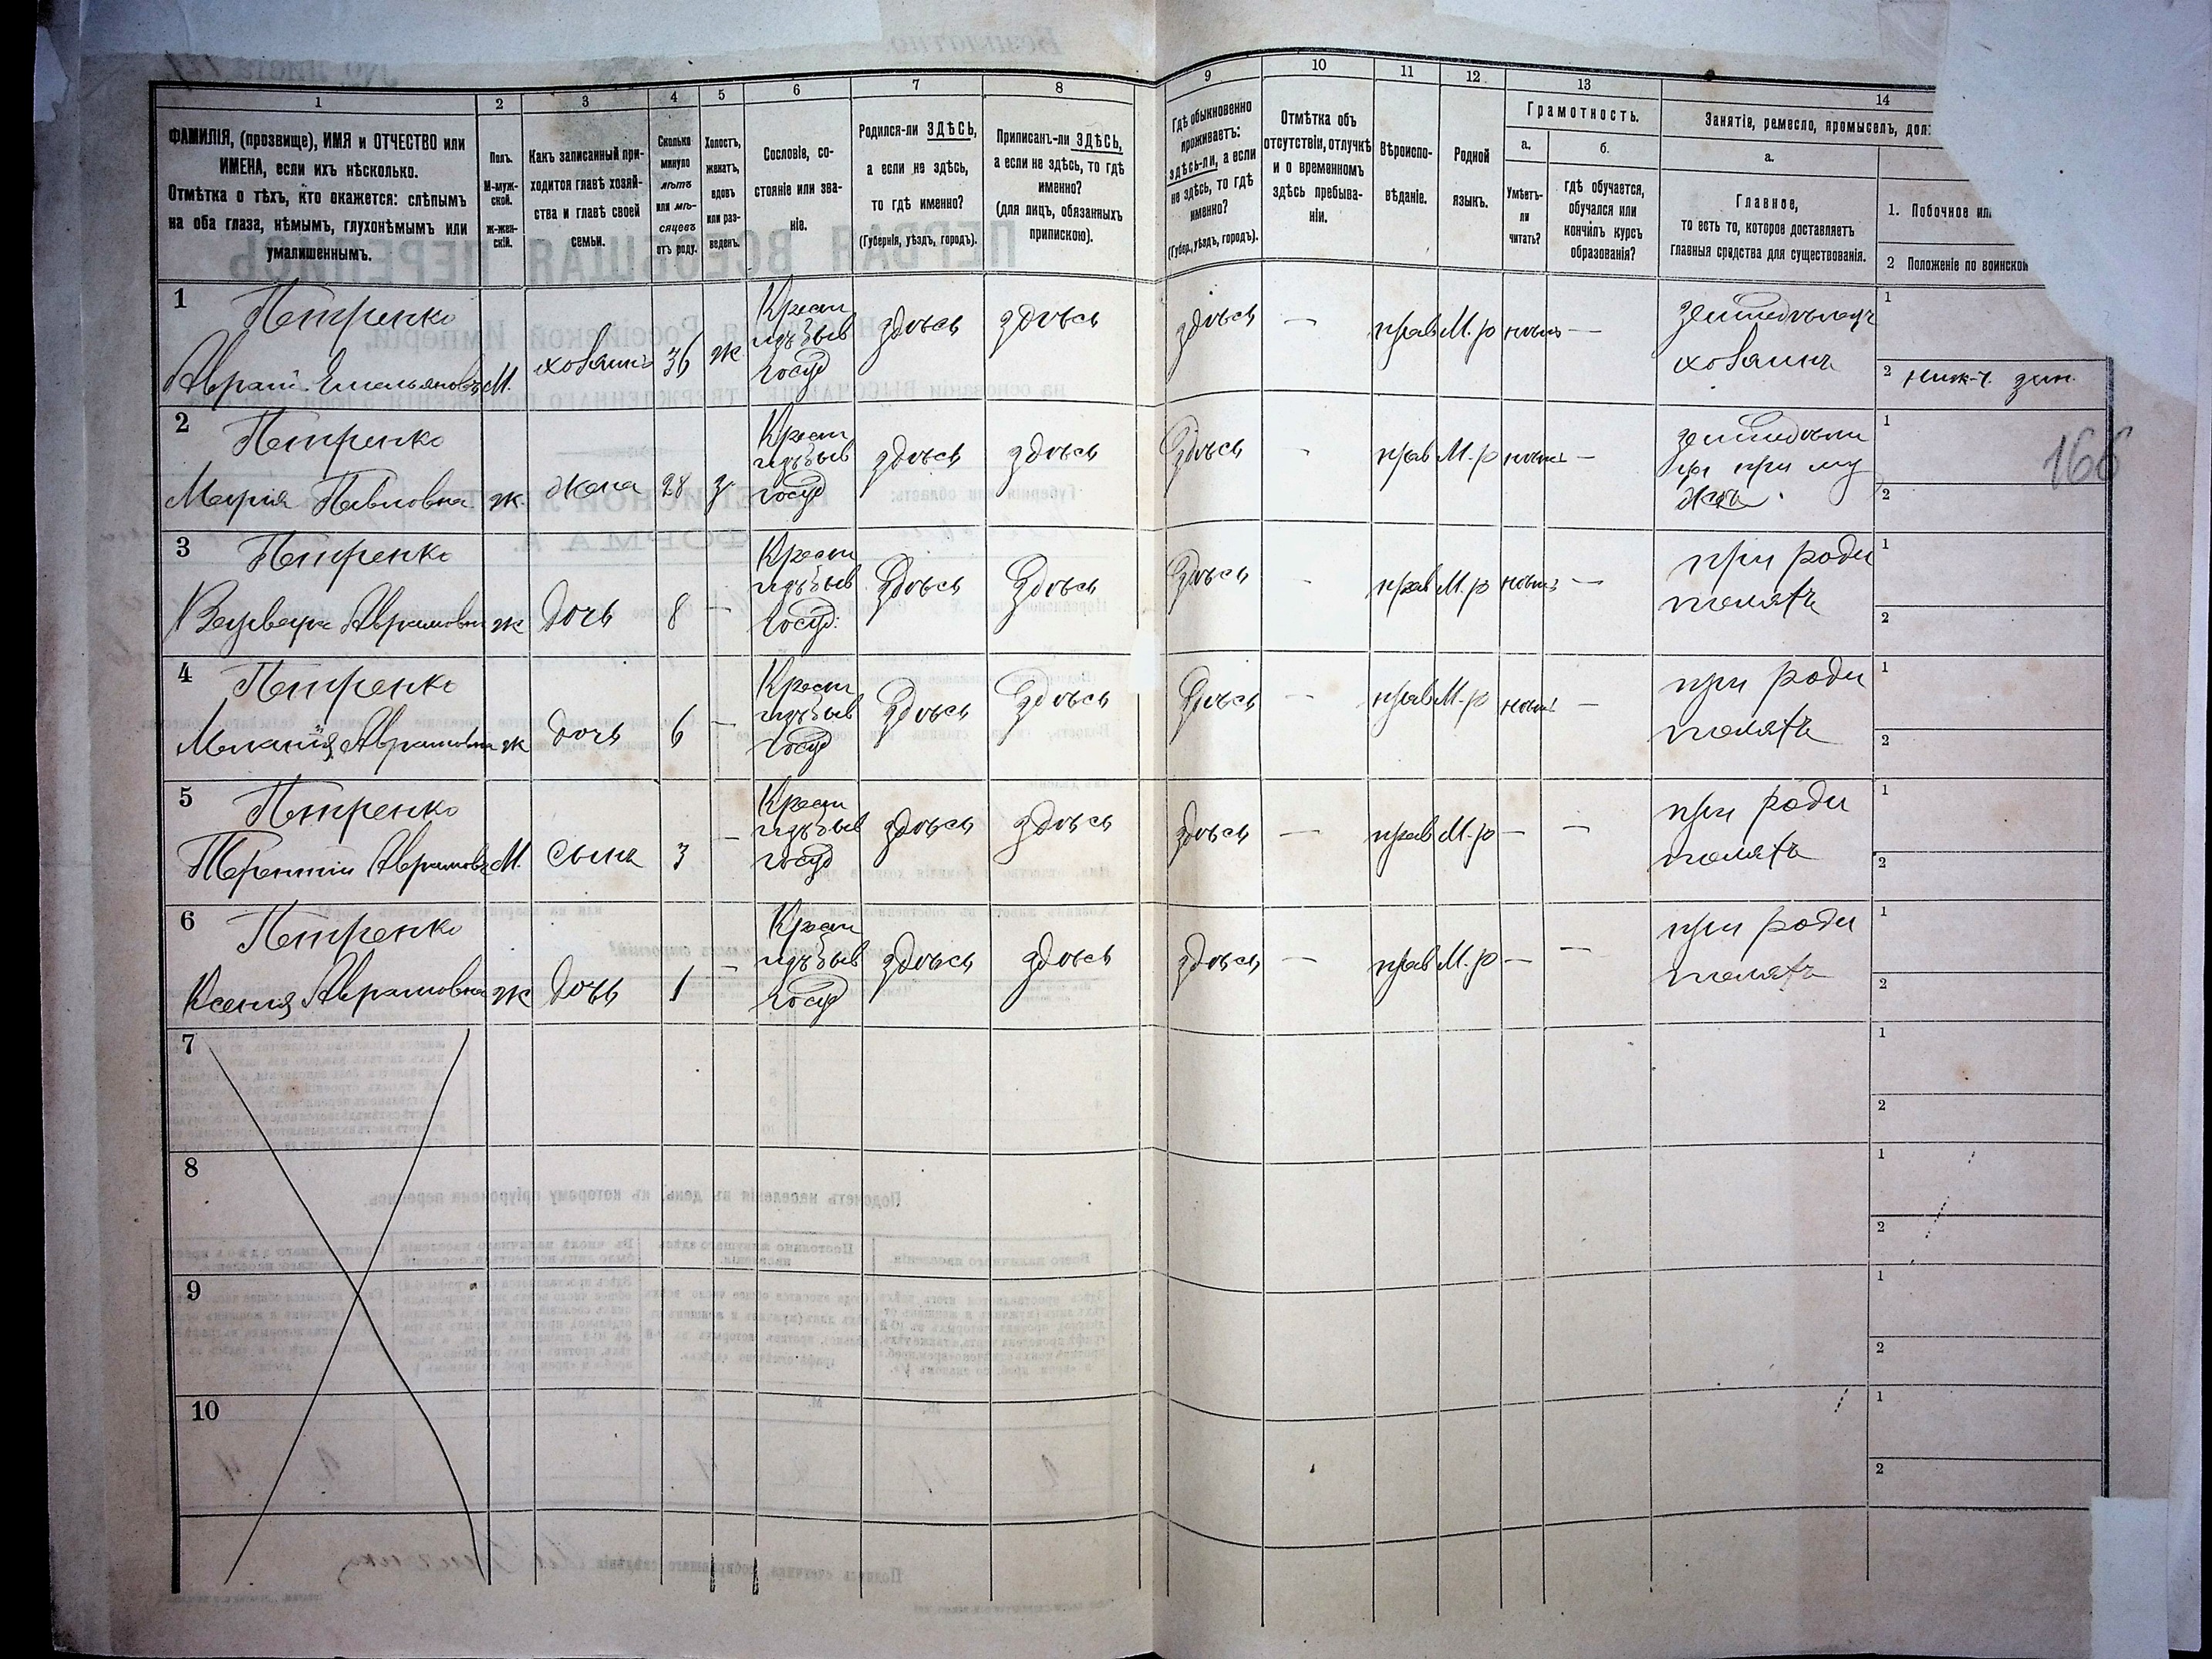 1
2
3
4
5
6
7
8
9
10
11
12
13
14
ФАМИЛІЯ, (прозвище), ИМЯ и ОТЧЕСТВО или
ИМЕНА, если ихъ нѣсколько.
Отмѣтка о тѣхъ, кто окажется: слѣпымъ
на оба глаза, нѣмымъ, глухонѣмымъ или
умалишеннымъ.
Полъ.
М-муж-
ской.
ж-жен-
скій.
Какъ записанный при-
ходится главѣ хозяй-
ства и главѣ своей
семьи.
Сколько
минуло
лѣтъ
или мѣ-
сяцевъ
отъ роду.
Холостъ,
женатъ,
вдовъ
или раз-
веденъ.
Сословіе, со-
стояніе или зва-
ніе.
Родился-ли ЗДѢСЬ,
а если не здѣсь,
то гдѣ именно?
(Губернія, уѣздъ, городъ).
Приписанъ-ли ЗДѢСЬ,
а если не здѣсь, то гдѣ
именно?
(для лицъ, обязанныхъ
припискою).
Гдѣ обыкновенно
проживаетъ:
здѣсь-ли, а если
не здѣсь, то гдѣ
именно?
(Губер., уѣздъ, городъ).
Отмѣтка объ
отсутствіи, отлучкѣ
и о временномъ
здѣсь пребыва-
ніи.
Вѣроиспо-
вѣданіе.
Родной
языкъ.
Грамотность.
а.
Умѣетъ-
ли
читать?
б.
гдѣ обучается,
обучался или
кончилъ курсъ
образованія?
Занятіе, ремесло, промыселъ, дол
а.
Главное,
то есть то, которое доставляетъ
главныя средства для существованія.
1. Побочное или
2 Положеніе по воинской
1
Петренко
Аврам. Емельяновъ М. хозяинъ 36 ж
Крест
изъ быв
госуд
здѣсь здѣсь здѣсь — прав М.р нѣтъ —
земледѣлецъ
хозяинъ
1
2
2
Петренко
Марія Павловна ж. жена 28 з
Крест
изъ быв
госуд
здѣсь здѣсь здѣсь - прав М.р нѣтъ —
при му
1
2
166
3
Петренко
Варвара Аврамовна ж дочь 8 —
Крест
изъ быв
госуд:
здѣсь здѣсь здѣсь - прав М.р нѣтъ —
при роди
теляхъ
1
2
4
Петренко
Меланія Аврамовна ж дочь 6 —
Крест
изъ быв
госуд
здѣсь здѣсь здѣсь — прав М.р нѣтъ —
при роди
теляхъ
1
2
5
Петренко
Терентий Аврамовъ М. сынъ 3 —
Крест
изъ быв
госуд
здѣсь здѣсь здѣсь — прав М.р — —
при роди
теляхъ
1
2
6
Петренко
Ксения Аврамовна ж дочь 1 —
Крест
изъ быв
госуд
здѣсь здѣсь здѣсь — прав М.р — —
при роди
теляхъ
1
2
7
1
2
8
1
2
9
1
2
10
1
2